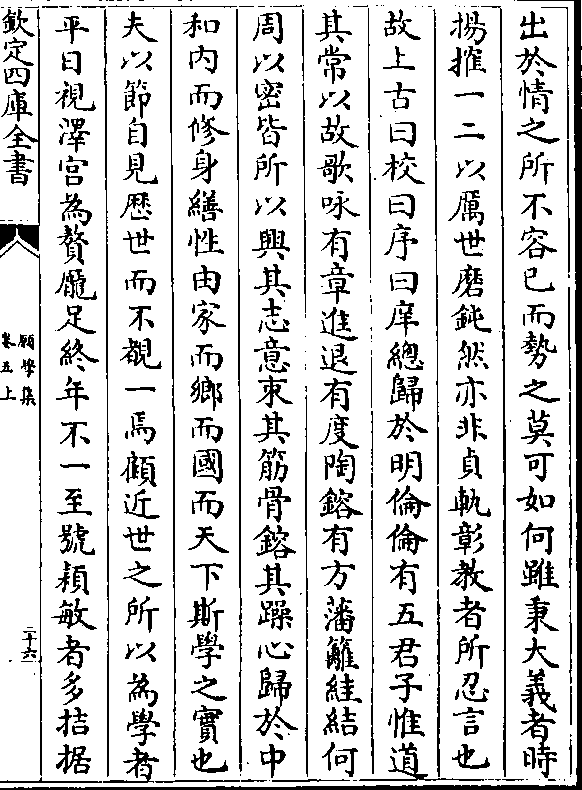 出於情之所不容已而勢之莫可如何雖秉大義者時
揚搉一二以厲世磨鈍然亦非貞軌彰教者所忍言也
故上古曰校曰序曰庠總歸於明倫倫有五君子惟道
其常以故歌咏有章進退有度陶鎔有方藩籬絓結何
周以密皆所以興其志意束其筋骨鎔其躁心歸於中
和内而修身繕性由家而鄉而國而天下斯學之實也
夫以節自見歴世而不覩一焉顧近世之所以為學者
平日視澤宫為贅龎足終年不一至號穎敏者多拮据
欽定四庫全書
願學集
卷五上
二十六